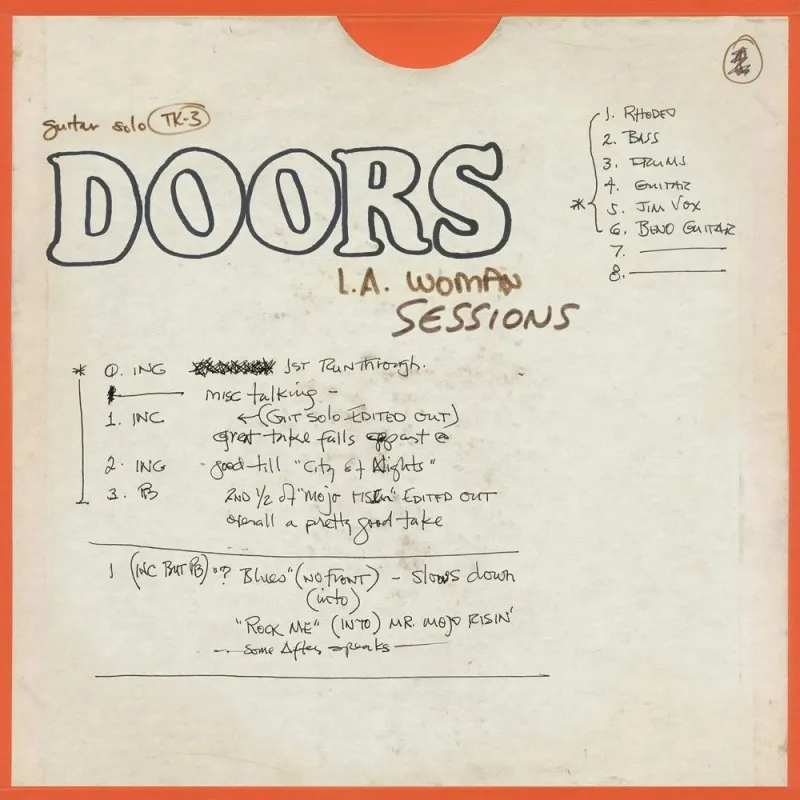 guitar solo TK-3
DOORS
L.A. WOMAN
SESSIONS
1. RHODES
2. BASS
3. DRUMS
4. GUITAR
* 5. JIM VOX
6. BEND GUITAR
7. ———
8. ———
* 0. ING 1ST RUNThrough.
misc talking -
1. INC ←(GIT SOLO EDITED OUT)
great take falls apart @
2. ING good till "City of Nights"
3. PB 2ND 1/2 of "Mojo RISIN" EDITED OUT
overall a pretty good take
1 (INC BUT PB) "? Blues" (NO FRONT) - slows down
(into)
"ROCK ME" (INTO) MR. MOJO RISIN'
— some After speaks —